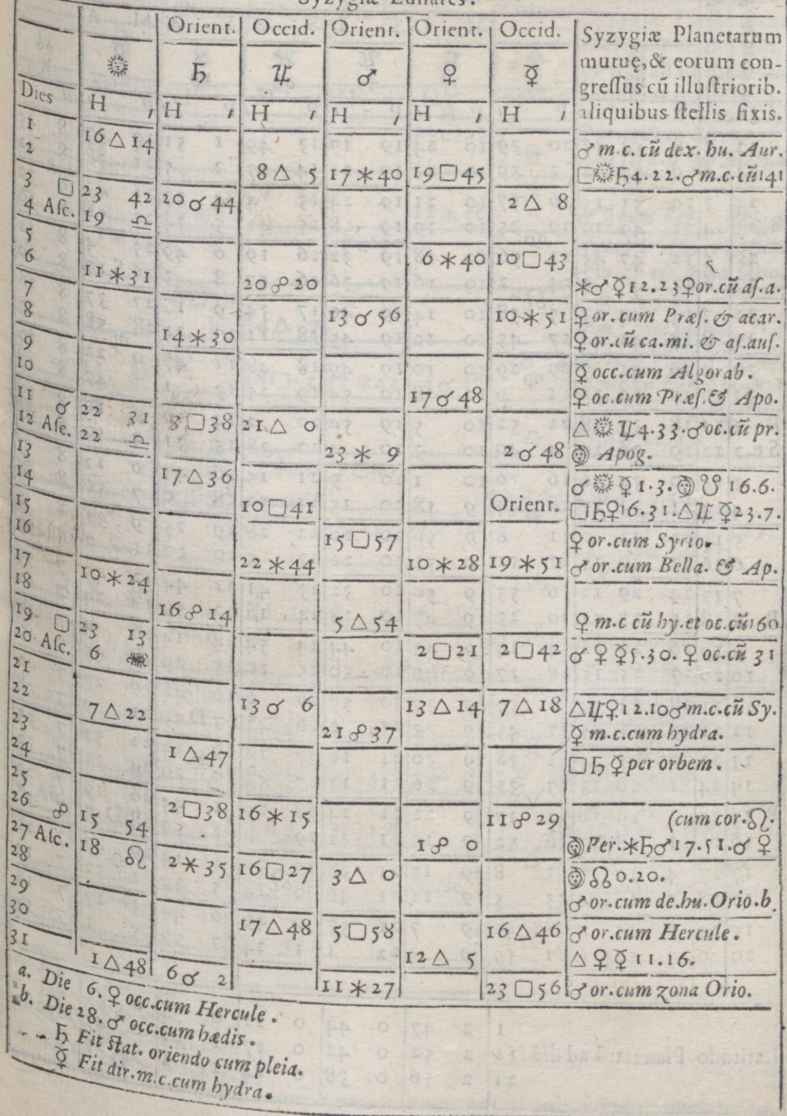 Syzygiæ Lunares.
Orient. Occid. Orient. Orient. Occid. Syzygiæ Planetarum
mutuę, & eorum con-
☉ ♄ ♃ ♂ ♀ ☿ gressus cū illustriorib.
Dies H ′ H ′ H ′ H ′ H ′ H ′ aliquibus stellis fixis.
1 16△14 ♂ m.c. cū dex. hu. Aur.
2 8△ 5 17✶40 19□45 □☉♄4.22.♂m.c.cū141
3 □ 23 42 20☌44 2△ 8
4 Asc. 19 ♎
5
6 11✶31 6✶40 10□43
7 20☍20 ✶♂☿12.23♀or.cū as.a.
8 13☌56 10✶51 ♀ or.cum Præs. & acar.
9 14✶30 ♀ or.cū ca.mi. & as.aus.
10 ☿ occ.cum Algorab.
11 ☌ 22 31 17☌48 ♀ oc.cum Præs. & Apo.
12 Asc. 22 ♎ 8□38 21△ 0 △☉♃4.33.♂oc.cū pr.
13 23✶ 9 2☌48 ☽ Apog.
14 17△36 ☌☉☿1.3.☽☋16.6.
15 10□41 Orient. □♄♀16.31.△♃☿23.7.
16 15□57 ♀ or.cum Syrio.
17 10✶24 22✶44 10✶28 19✶51 ♂ or.cum Bella. & Ap.
18 16☍14 5△54 ♀ m.c cū hy.et oc.cū160
19 □ 23 13
20 Asc. 6 2□21 2□42 ☌♀☿5.30.♀oc.cū 31
21
22 7△22 13☌ 6 13△14 7△18 △♃♀12.10♂m.c.cū Sy.
23 21☍37 ☿ m.c.cum hydra.
24 1△47 □♄☿per orbem.
25
26 ☍ 15 54 2□38 16✶15 11☍29 (cum cor.♌.
27 Asc. 18 ♌ 1☍ 0 ☽Per.✶♄♂17.51.☌♀
28 2✶35 16□27 3△ 0 ☽☊0.20.
29 ♂ or.cum de.hu.Orio.b.
30 17△48 5□58 16△46 ♂ or.cum Hercule.
31 1△48 12△ 5 △♀☿11.16.
6☌ 2 11✶27 23□56 ♂ or.cum zona Orio.
a. Die 6. ♀ occ.cum Hercule.
b. Die 28. ♂ occ.cum hædis.
♄ Fit stat. oriendo cum pleia.
☿ Fit dir.m.c.cum hydra.